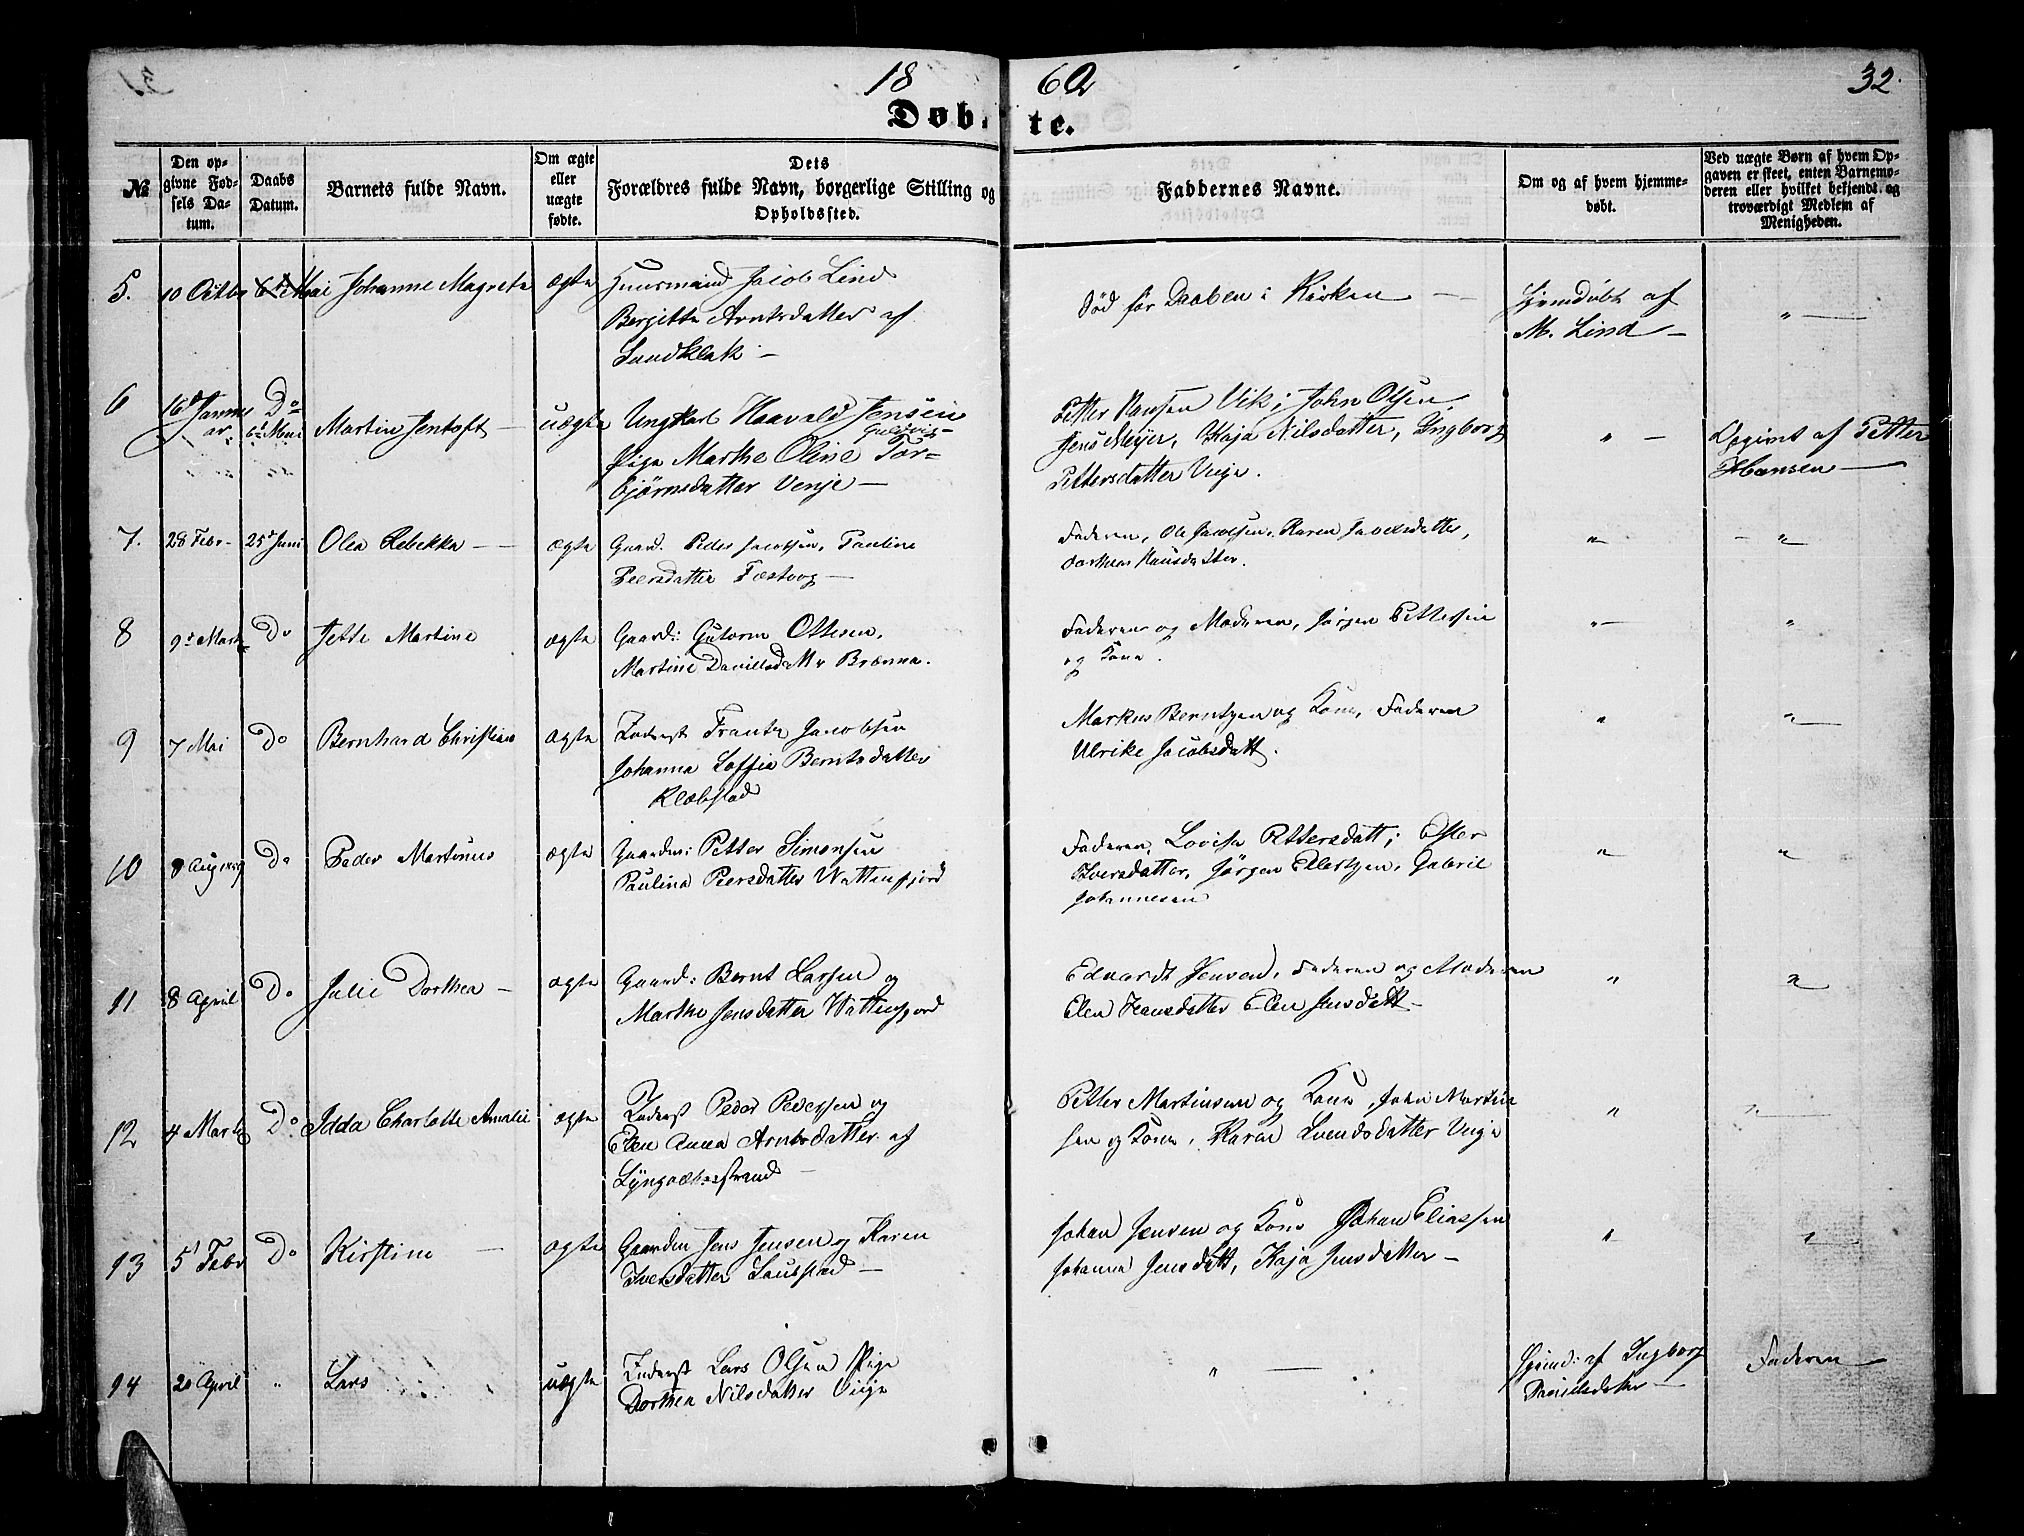 18 60 32.
Døbte.
№
Den opgivne Fødsels Datum.
Daabs Datum.
Barnets fulde Navn.
Om ægte eller uægte fødte.
Dets Forældres fulde Navn, borgerlige Stilling og Opholdssted.
Faddernes Navne.
Om og af hvem hjemmedøbt.
Ved uægte Børn af hvem Opgaven er skeet, enten Barnemoderen eller hvilket bekjendt og troværdigt Medlem af Menigheden.
5. 10 Octbr 6te Mai Johanne Magreta ægte Huusmand Jacob Lind
Bergitta Arntsdatter af
Sandklak —
Død før Daaben i Kirken —
Hjemdøbt af
M. Lind —
" —
6 16d Janu
ar Do
6te Mai Martin Jentoft — uægte Ungkarl Haavald Jensen
Guldvig
Pige Marthe Oline Tor-
björnsdatter Venje —
Petter Hansen Vik; John Olsen
Jens Meyer, Kaja Nilsdatter, Ingborg
Pettersdatter Veje.
" —
Opgivet af Petter
Hansen —
7. 28 Febr. 25d Juni Olea Rebekka — ægte Gaard. Peder Jacobsen, Pauline
Peersdatter Festvog —
Faderen, Ole Jacobsen, Karen Jacobsdatter,
Dorthea Hansdatter.
" "
8 9d Marts Do Jette Martine ægte Gaard: Gutorm Ottesen,
Martine Davidsdattr Brænna.
Faderen og Moderen, Jørgen Pettersen
og Kone.
" "
9 7 Mai Do Bernhard Christian ægte Inderst Frantz Jacobsen
Johanna Soffia Berntsdatter
Klæbstad
Markus Berntzen og Kone, Faderen
Ulrike Jacobsdatt.
" "
10 8 Aug 1859 Do Peder Martinus ægte Gaardm: Petter Simonsen
Paulina Peersdatter Wattenfjord
Faderen, Lovisa Pettersdatt; Ester
Iversdatter, Jørgen Ellertzen, Gabriel
Johannesen
" "
11 8 April Do Julie Dorthea — ægte Gaard: Bernt Larsen og
Marthe Jensdatter Wattenfjord
Edvardt Jensen, Faderen og Moderen
Elen Hansdatter Elen Jensdatt —
" "
12 4 Marts Do Idda Charlotte Amalie ægte Inderst Peder Pedersen og
Elen Anna Arntsdatter af
Lyngværstrand —
Petter Martinsen og Kone, John Martin
sen og Kone, Karen Svendsdatter Veje
" "
13 5d Febr Do Kirstine — ægte Gaardm Jens Jensen og Karen
Iversdatter Saustad —
Johan Jensen og Kone Johan Eliassen
Johanna Jensdatt, Kaja Jensdatter —
" "
14 20 April " Lars uægte Inderst Lars Olsen Pige
Dorthea Nilsdatter Veije
" —
Hjemd: af Ingborg
Danielsdatter —
Faderen